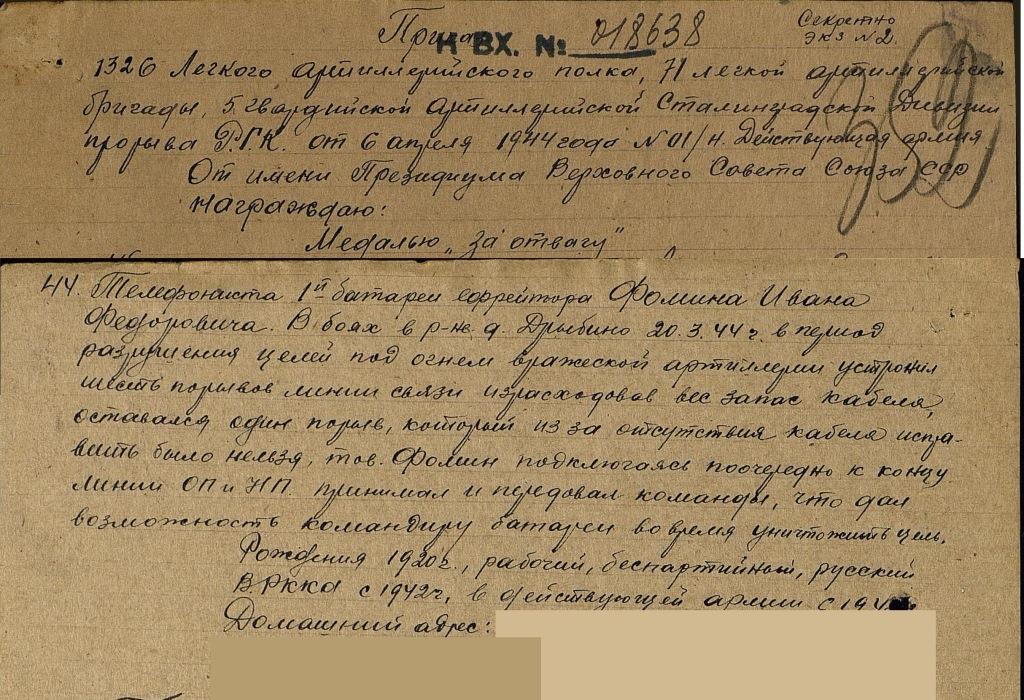 Приказ
Н ВХ. № 018638
Секретно
Экз N 2.
1326 Легкого артиллерийского полка, 71 легкой артиллерийской
бригады, 5 гвардийской артиллерийской Сталинградской Дивизии
прорыва Р.Г.К. от 6 апреля 1944 года N 01/н. Действующая армия.
От имени Президиума Верховного Совета Союза ССР
награждаю:
Медалью „За отвагу"
44. Телефониста 1й батареи ефрейтора Фомина Ивана
Федоровича. В боях в р-не д. Дрыбино 20.3.44 г. в период
разрушения целей под огнем вражеской артиллерии устронил
шесть порывов линии связи израсходовав вес запас кабеля,
оставался один порыв, который из за отсутствия кабеля испра-
вить было нельзя, тов. Фомин подключаясь поочередно к концу
линии ОП и НП. принимал и передовал команды, что дал
возможность командиру батареи во время уничтожить цель.
Рождения 1920 г., рабочий, беспартийный, русский
В РККА с 1942 г, в действующей армии с 194
Домашний адрес: